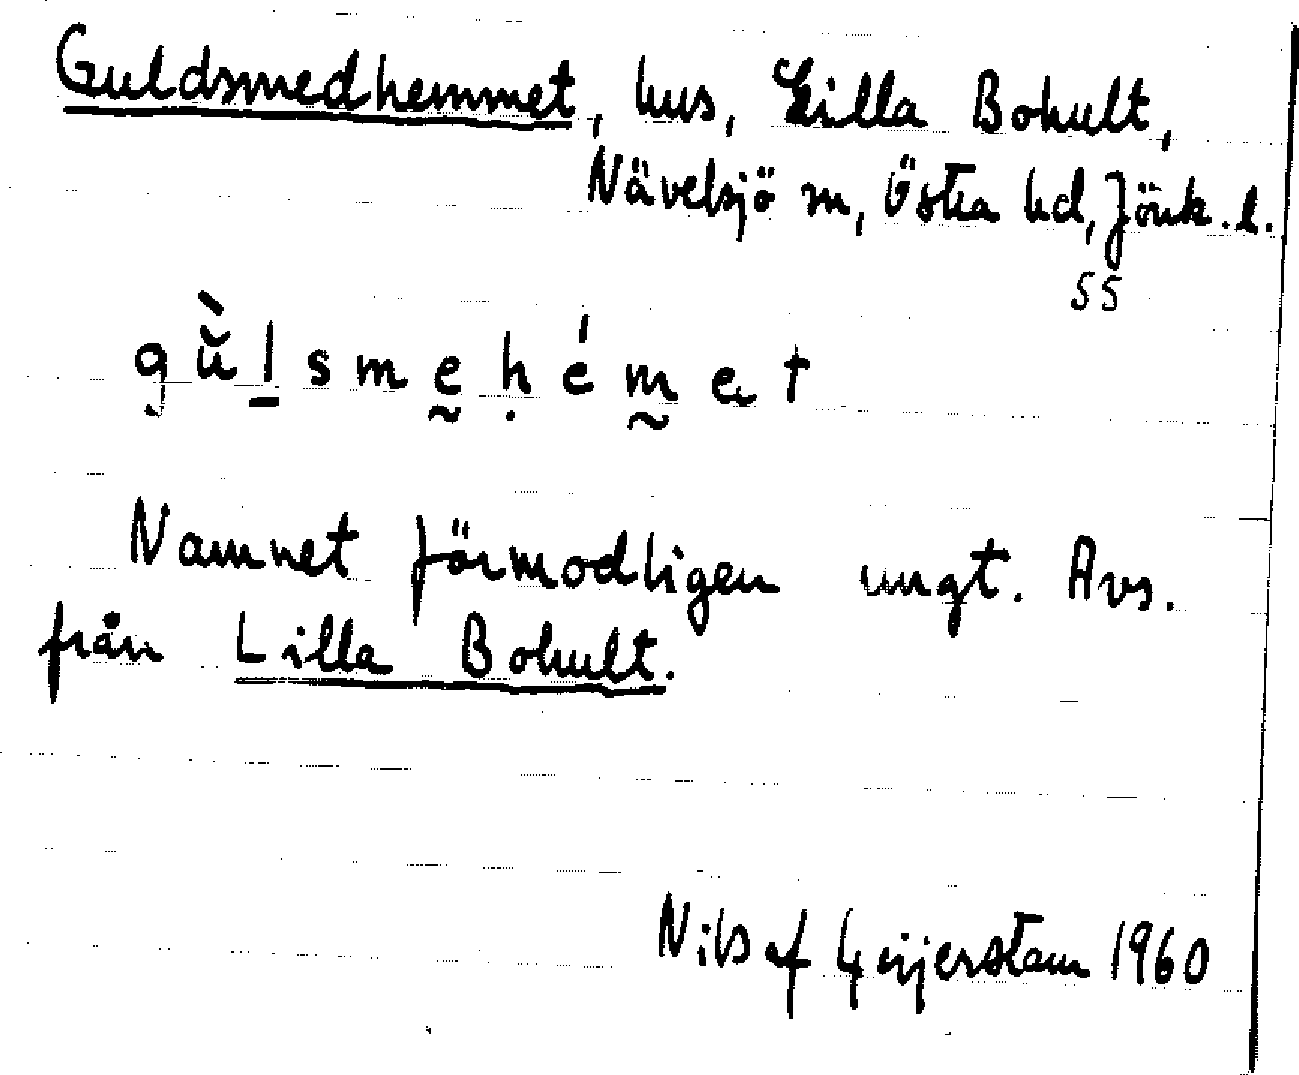 Guldsmedhemmet, hus, Lilla Bohult,
Nävelsjö sn, Östra hd, Jönk. l.
55
gŭ̀l̠smḛḥém̰et
Namnet förmodligen ungt. Avs.
från Lilla Bohult.
Nils af Geijerstam 1960